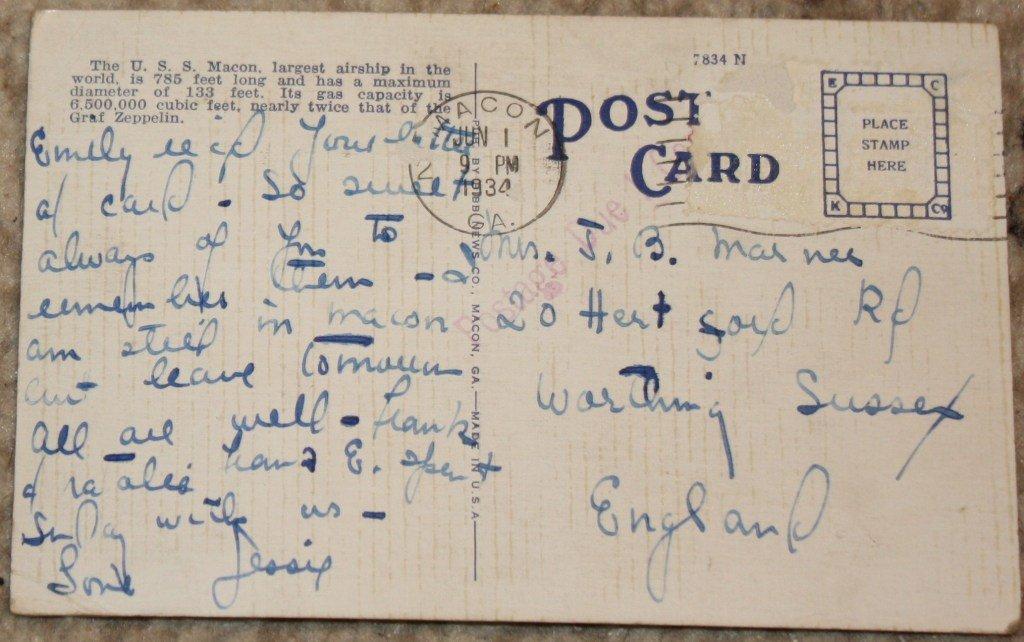 The U. S. S. Macon, largest airship in the
world, is 785 feet long and has a maximum
diameter of 133 feet. Its gas capacity is
6,500,000 cubic feet, nearly twice that of the
Graf Zeppelin.
Emily rec'd your letter
a/ card - So sweet
always of you to
remember them - I
am still in Macon
but leave tomorrow
All are well - Frank
E. spent
Sunday with us -
Love Jessie
MACON
JUN 1
9 PM
1934
GA.
PUB. BY BIBB NEWS CO., MACON, GA. — MADE IN U.S.A.
7834 N
POST
CARD
E C
K Co
PLACE
STAMP
HERE
Postage Due
Mrs. J. B. Marner
20 Hertford Rd
Worthing Sussex
England